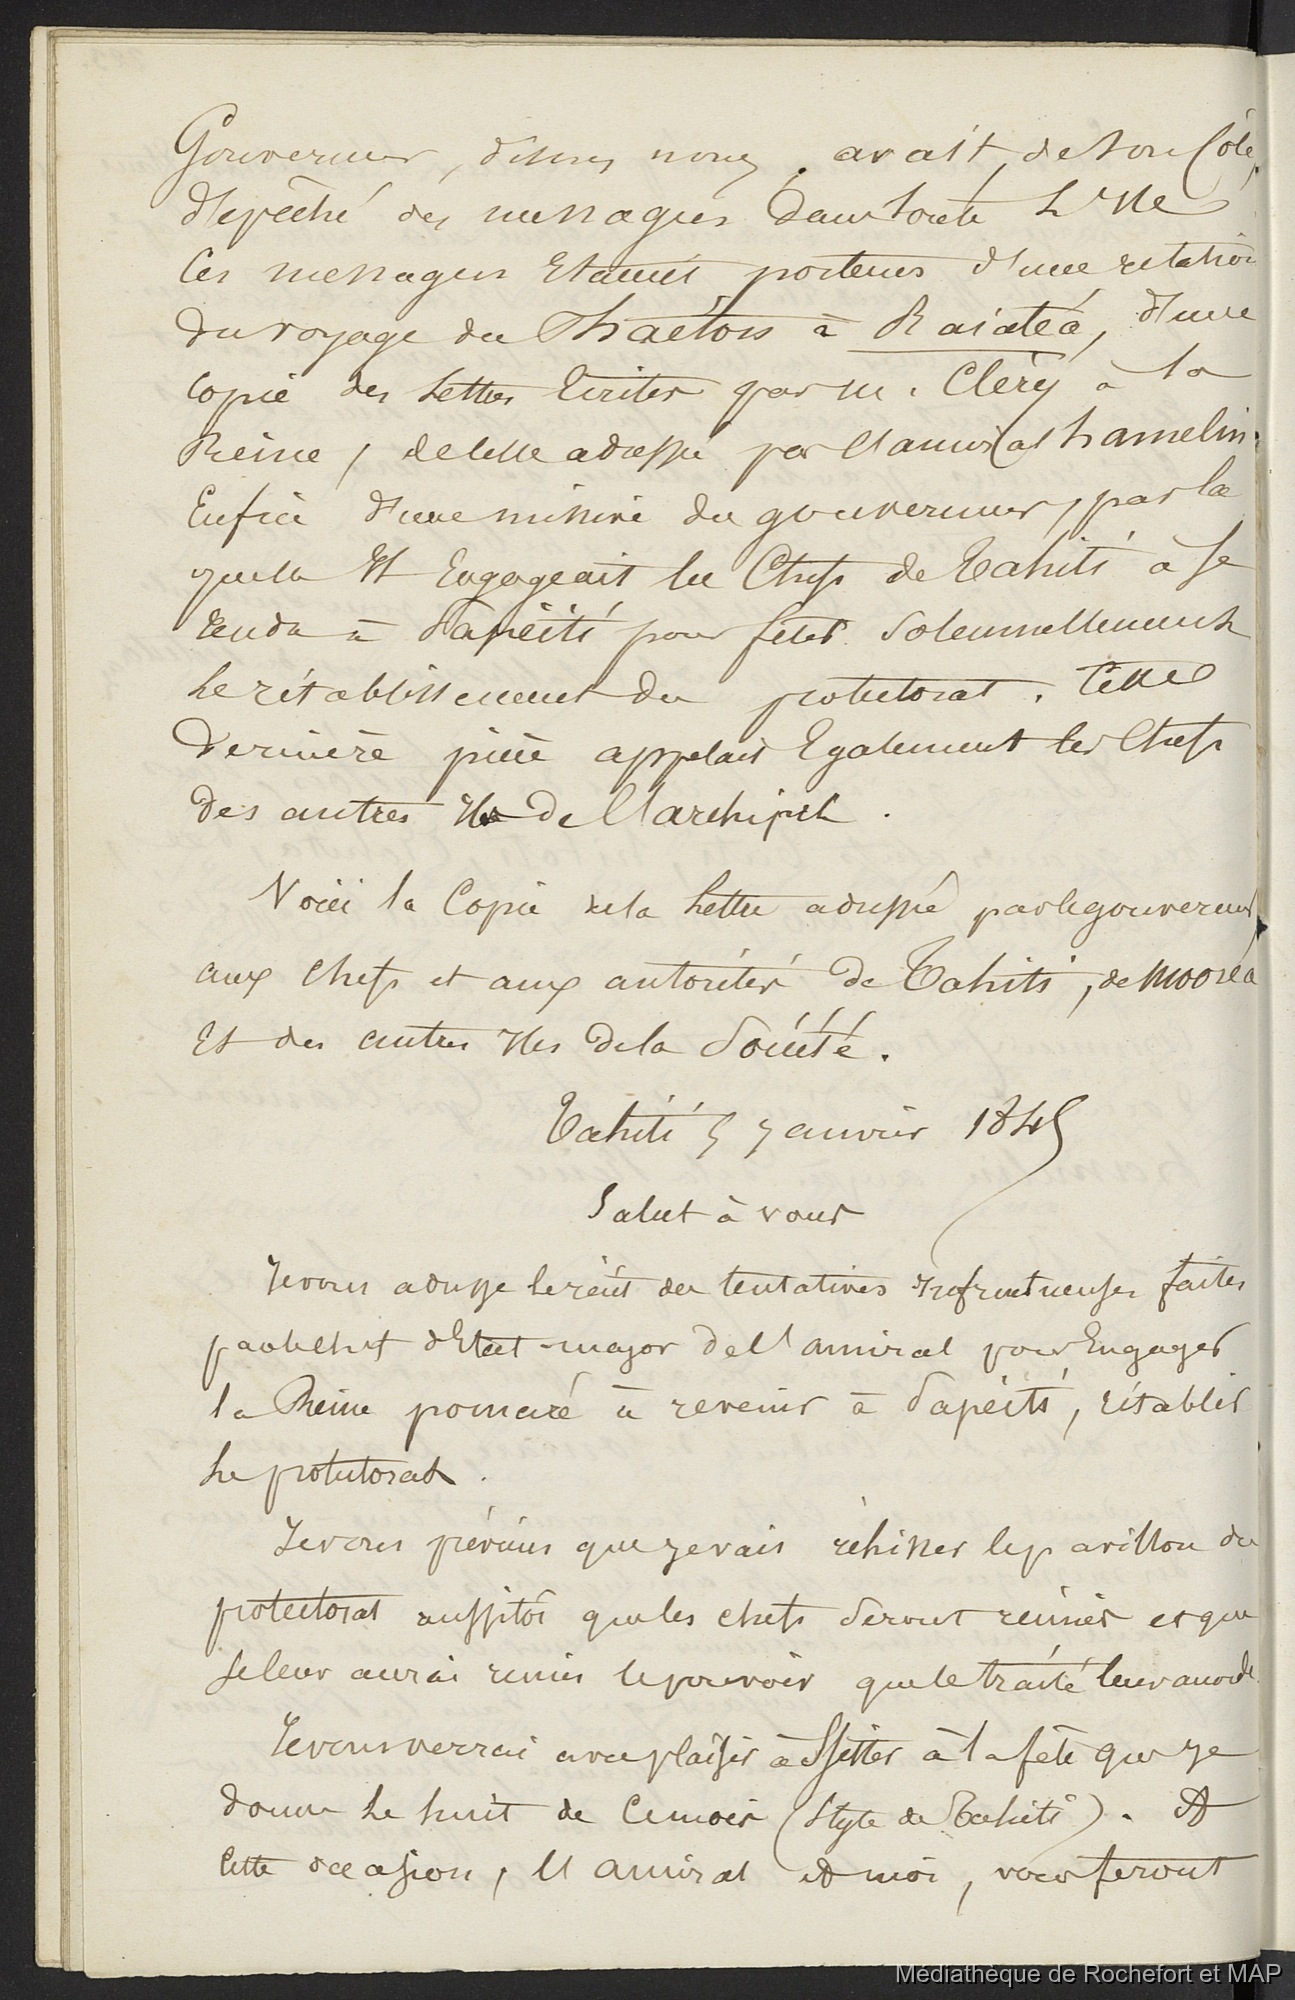 Gouverneur, disons nous, avait, de son Côté,
dépêché des messagers dans toute l'Ile
Ces messagers Etaient porteurs d'une relation
du voyage du Phaéton à Raiatéa, d'une
copie des lettres Ecrites par M. Cléry à la
Reine, de celle adressée par l'amiral hamelin
Enfin d'une missive du gouverneur, par la
quelle Il Engageait les Chefs de Tahiti à se
rendre à Papéiti pour fêter Solennellement
le rétablissement du protectorat. Cette
Dernière pièce appelait Egalement les Chefs
Des autres Iles De l'archipel.
Voici la Copie de la lettre adressée par le gouverneur
aux chefs et aux autorités De Tahiti, de Mooréa
Et des autres Iles De la Société.
Tahiti 5 Janvier 1845
Salut à vous
Je vous adresse le récit des tentatives Infructueuses faites
par le chef d'Etat-major De l'amiral pour Engager
la Reine pomaré à revenir à Papéiti, rétablir
le protectorat.
Je vous préviens que je vais réhisser le pavillon du
protectorat aussitôt que les chefs Seront réunis et que
je leur aurai remis le pouvoir que le traité leur accorde
Je vous verrai avec plaisir assister à la fête que je
donne le huit de Ce mois (Style de Tahiti). A
Cette occasion, l'amiral et moi, vous feront
Médiathèque de Rochefort et MAP